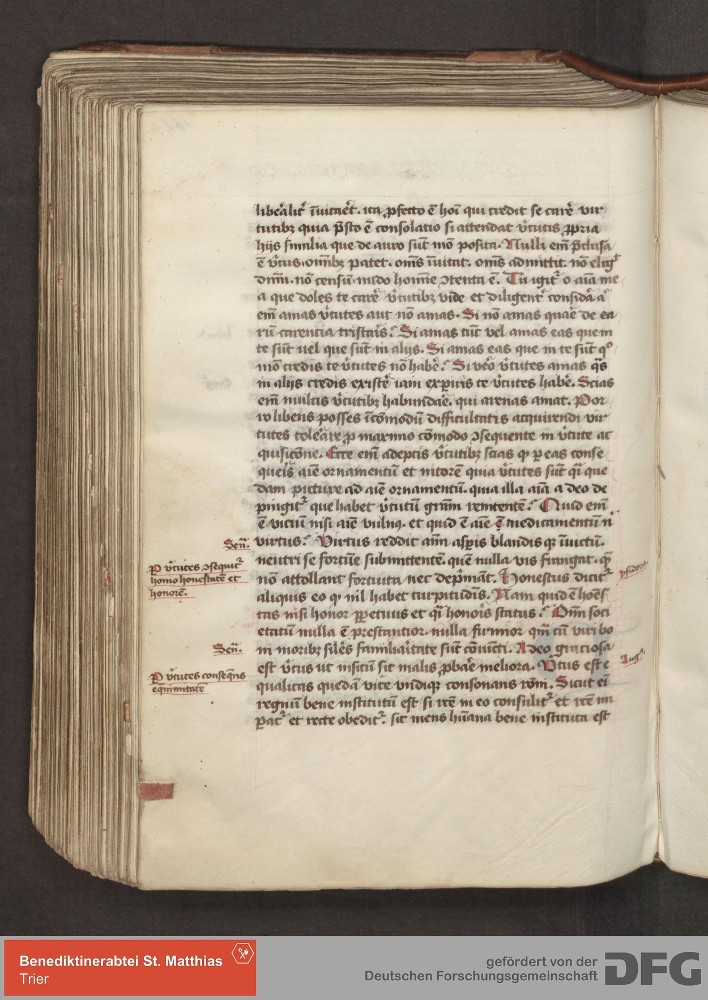 libẽalit̃ ĩuitaẽt. ita ꝓfecto ẽ hoĩ qui credit se carẽ vir
tutibꝫ quia p̃sto ẽ consolatio si attendat v̓tutis ꝓpria
hijs similia que de auro sũt mõ posita. Nulli em̃ p̃clusa
ẽ v̓tus. omĩbꝫ patet. oms̃ ĩuitat. oms̃ admittit. nõ elig᷑
domũ. nõ censũ. nudo homĩe ɔtenta ẽ. Tu igit᷑ o aĩa me
a que doles te carẽ v̓tutibꝫ vide et diligent̓ considãa a᷑
em̃ amas v̓tutes aut nõ amas. Si nõ amas quar̃e de ea
rũ carencia tristar̃is? Si amas tũc vel amas eas quem
te sũt uel que sũt in alijs. Si amas eas que in te sũt qͦ
mõ credis te v̓tutes nõ habẽ? Si veõ v̓tutes amas q̃s
in alijs credis existẽ iam expiris te v̓tutes habẽ. Scias
em̃ multis v̓tutibꝫ habundãe. qui arenas amat. Por
ro libens posses ĩcõmodũ difficultatis acquirendi vir
tutes toler̃are ꝓ maximo cõmodo ɔsequente in v̓tute ac
quisicõne. Ecce em̃ adeptis v̓tutibꝫ scias qꝫ p eas conse
queris aĩe ornamentũ et nitorẽ quia v̓tutes sũt q̃i que
dam picture ad aĩe ornamentũ. quia illa aĩa a deo de
pingit᷑ que habet v̓tutũ gr̃am renitentẽ? Quid em̃
ẽ viciũ nisi aĩe vulnꝫ. et quid ẽ aĩe ẽ medicamentũ n̓
virtus? Virtus reddit aĩm aspis blandisqꝫ ĩuictũ.
neutri se fortũe submittentẽ. quẽ nulla vis frangat. qꝫ
nõ attollant fortuita nec dep̃mãt. Honestus dicit᷑
aliquis eo qꝫ nil habet turpitudĩs. Nam quid ẽ hõẽs
tas nisi honor ꝑpetuus et q̃i honoris status? Om̃ soci
etatũ nulla ẽ prestantior. nulla firmior qm̃ cũ viri bo
in moribꝫ siles̃ familiaritate sũt cõuicti. Adeo graciosa
est v̓tus ut insitũ sit malis ꝓbar̃e meliora. V̓tus est e
qualitas quedã vite vndiqꝫ consonans rõni. Sicut ei̓
regnũ bene institutũ est si rex̃ in eo consulit᷑ et rex̃ im
perat᷑ et recte obedit᷑. sic mens hũana bene instituta est
Señ.
P v̓tutes ɔsequit᷑
homo honestatẽ et
honorẽ.
Señ.
P v̓tutes conseqm̃s
eq̃nimitatẽ
ysidor̃
Augꝰ
Benediktinerabtei St. Matthias
Trier
gefördert von der
Deutschen Forschungsgemeinschaft
DFG